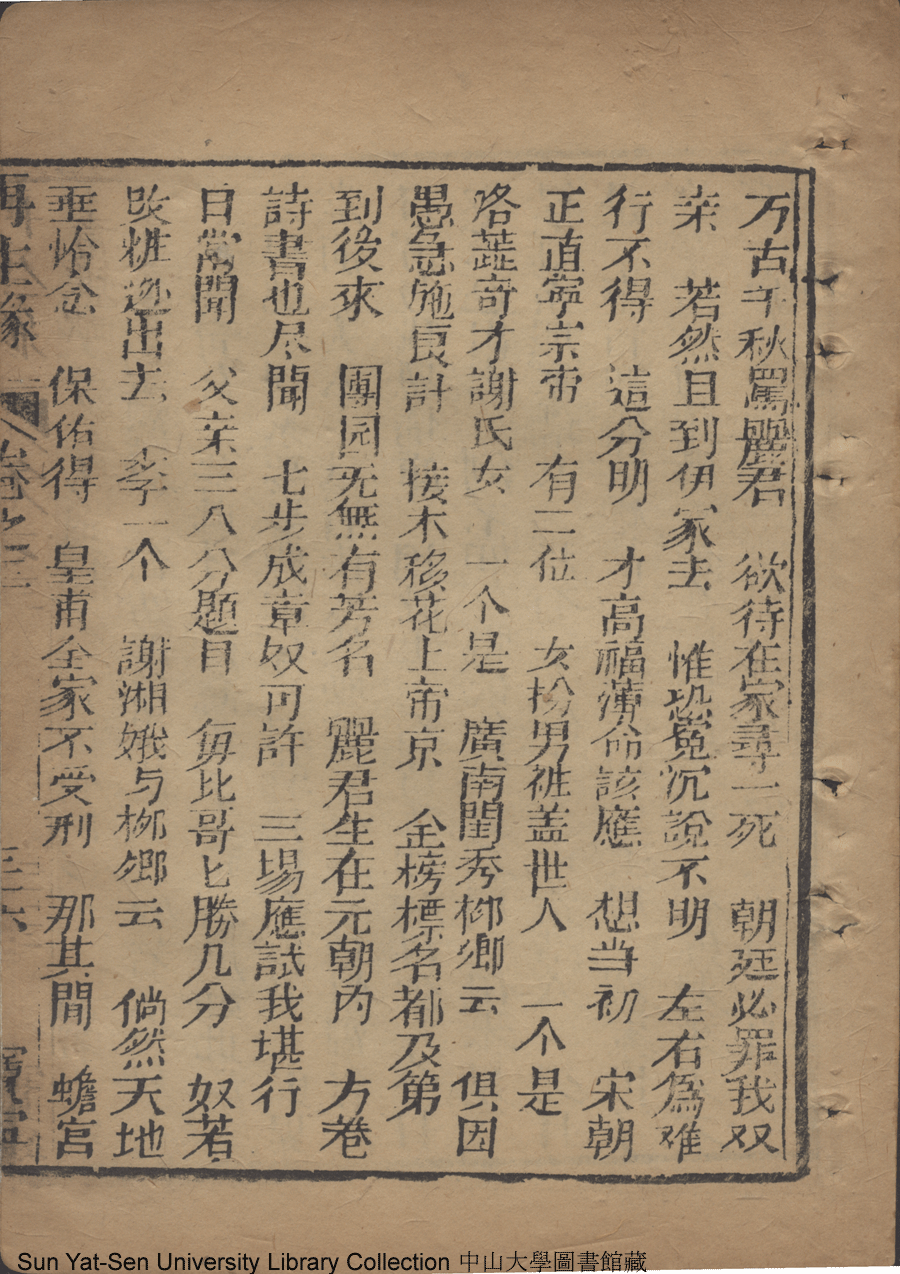 万古千秋罵麗君　欲待在家尋一死　朝廷必罪我双
亲　若然且到伊家去　惟恐冤沉說不明　左右為难
行不得　這分明　才高福薄命該應　想当初　宋朝
正直寧宗帝　有二位　女扮男粧盖世人　一个是
咯蓝奇才謝氏女　一个是　廣南閨秀柳卿云　俱因
愚急施良計　接木移花上帝京　金榜標名都及第
到後來　團园无無有芳名　麗君生在元朝內　方卷
詩書也尽聞　七步成章奴可許　三場應試我堪行
日常聞　父亲三八分題目　毎比哥匕勝几分　奴若
改粧逃出去　李一个　謝湘娥与柳卿云　倘然天地
垂怜念　保佑得　皇甫全家不受刑　那其間　蟾宫
再生緣　卷之三　三六　寶寧
Sun Yat-Sen University Library Collection 中山大學圖書館藏